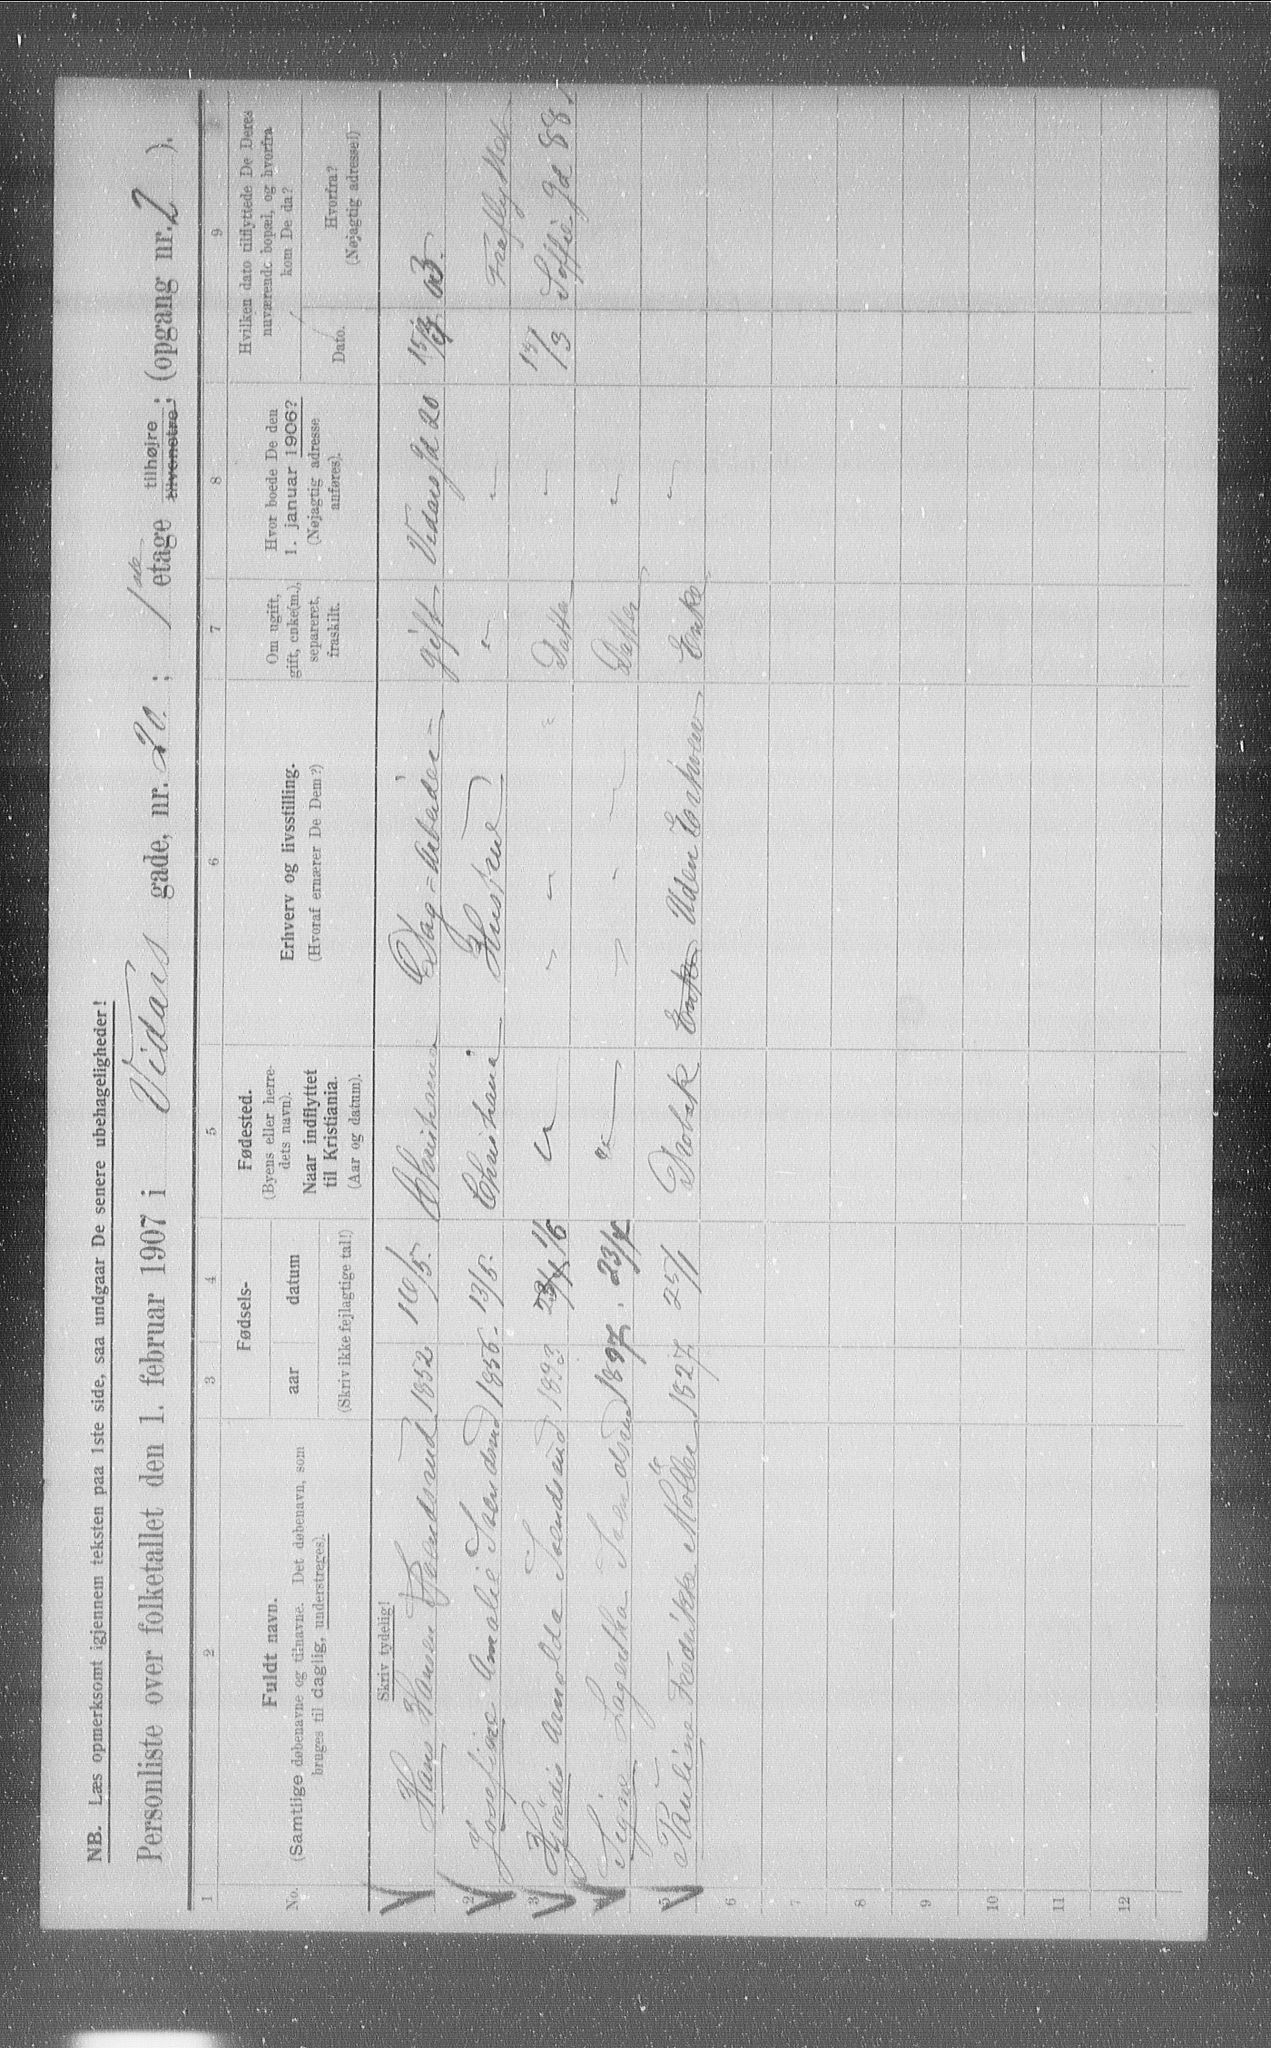 NB. Læs opmerksomt igjennem teksten paa 1ste side, saa undgaar De senere ubehageligheder!
Personliste over folketallet den 1. februar 1907 i Vidars gade, nr. 20. ; 1ste etage tilhøjre tilvenstre ; (opgang nr. 2 ).
1 2 3 4 5 6 7 8 9
No.
Fuldt navn.
(Samtlige døbenavne og tilnavne. Det døbenavn, som
bruges til daglig, understreges).
Fødsels-
aar datum
(Skriv ikke fejlagtige tal!)
Fødested.
(Byens eller herre-
dets navn).
Naar indflyttet
til Kristiania.
(Aar og datum).
Erhverv og livsstilling.
(Hvoraf ernærer De Dem?)
Om ugift,
gift, enke(m.),
separeret,
fraskilt.
Hvor boede De den
1. januar 1906?
(Nøjagtig adresse
anføres).
Hvilken dato tilflyttede De Deres
nuværende bopæl, og hvorfra
kom De da?
Dato.
Hvorfra?
(Nøjagtig adresse!)
Skriv tydelig!
1 Hans Hansen 1852 16/5. Christiania Dag-Arbeider gift Vidarsgd 20 15/3 03.
2 Josefine Amalie Svendsrud 1856. 13/5. Christiania Hustrue " " Fraflyttet
3 Hjørdis Arnolda Svendsrud 1893 23/4 1/6 " " " Datter " 13/3 Soffies gd 88.
4 Signe Lagertha Svendsrud 1897. 23/4 " " " Datter "
5 Pauline Fredrikke Møller 1827 25/1 Drøbak Enke Uden Erhverv Enke "
6
7
8
9
10
11
12